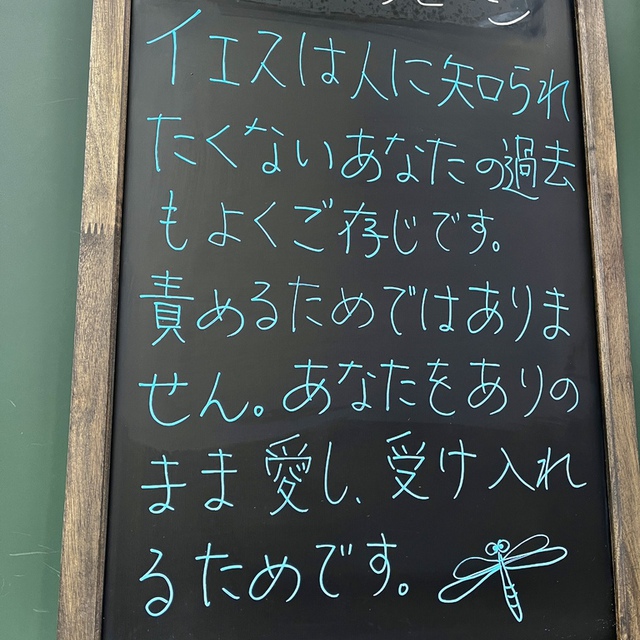 イエスは人に知られ
たくないあなたの過去
もよくご存じです。
責めるためではありま
せん。あなたをありの
まま愛し、受け入れ
るためです。